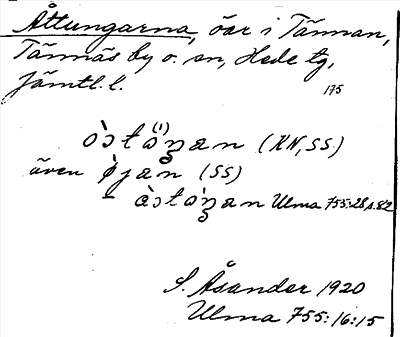 Åttungarna, öar i Tännan,
Tännäs by o. sn, Hede tg,
Jämtl. l.
175
(KN, SS)
även (SS)
Ulma 755:28, s. 82
S. Åsander 1920
Ulma 755:16:15